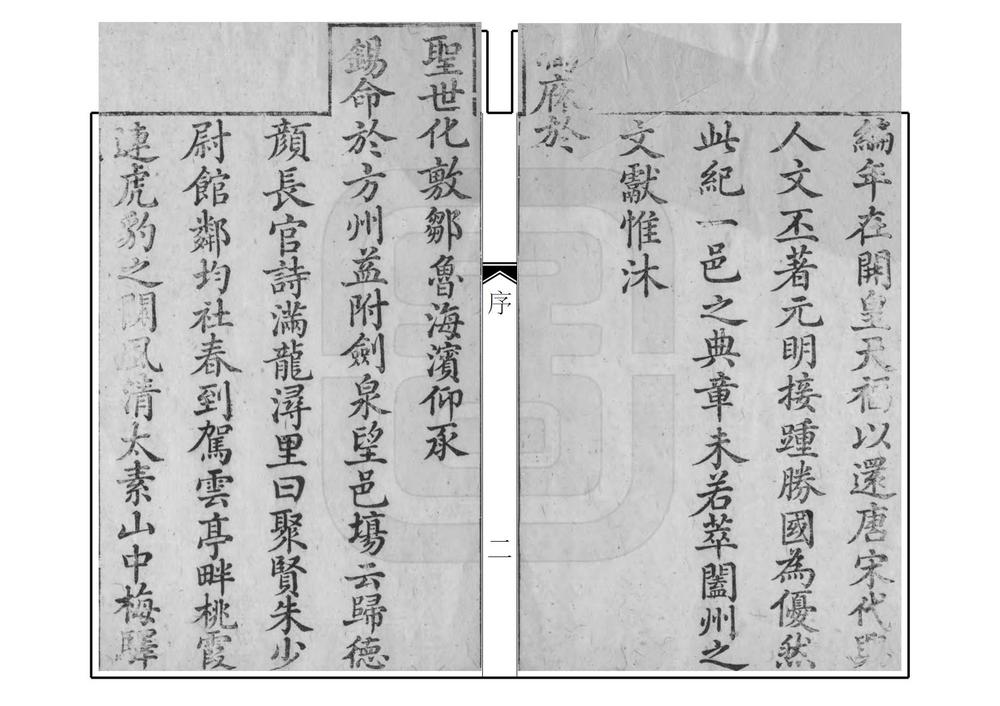 編年在開皇天福以還唐宋代興
人文丕著元明接踵勝國為優然
此紀一邑之典章未若萃闔州之
文獻惟沐
庥於
序
二
聖世化敷鄒魯海濱仰承
錫命於方州益附劍泉望邑塲云歸德
顔長官詩滿龍潯里曰聚賢朱少
尉館鄰均社春到駕雲亭畔桃霞
連虎豹之關風清太素山中梅驛